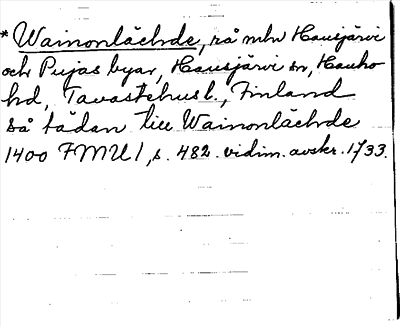 * Wainonlächde, rå mlm Hausjärvi
och Pujas byar, Hausjärvi sn, Hauho
hd, Tavastehus l., Finland
så tädan till Wainonlächde
1400 FMU 1, s. 482. vidim. avskr. 1733.